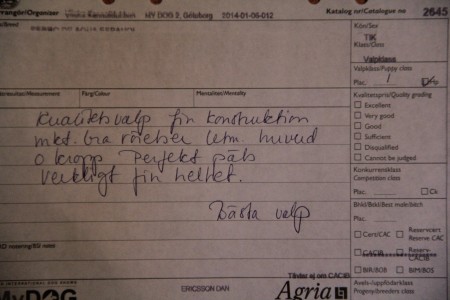 Arrangör/Organizer MY DOG 2, Göteborg 2014-01-06-012 Katalog nr/Catalogue no 2645
Kön/Sex
TIK
Klass/Class
Valpklass
Valpklass/Puppy class
Plac. 1
Färg/Colour Mentalitet/Mentality
Kvalitetspris/Quality grading
Excellent
Very good
Good
Sufficient
Disqualified
Cannot be judged
Kvalitetsvalp fin konstruktion
mkt. bra rörelser utm. huvud
o kropp Perfekt päls
verkligt fin helhet.
Bästa valp
Konkurrensklass
Competition class
Plac. Ck
Plac.
Cert/CAC Reserv-cert
Reserve CAC
CACIB Reserv-
CACIB
BIR/BOS BIM/BOS
Tilldelas ej om CACIB
Avels-/uppfödarklass
Progeny/breeders class
MyDOG ERICSSON DAN Agria